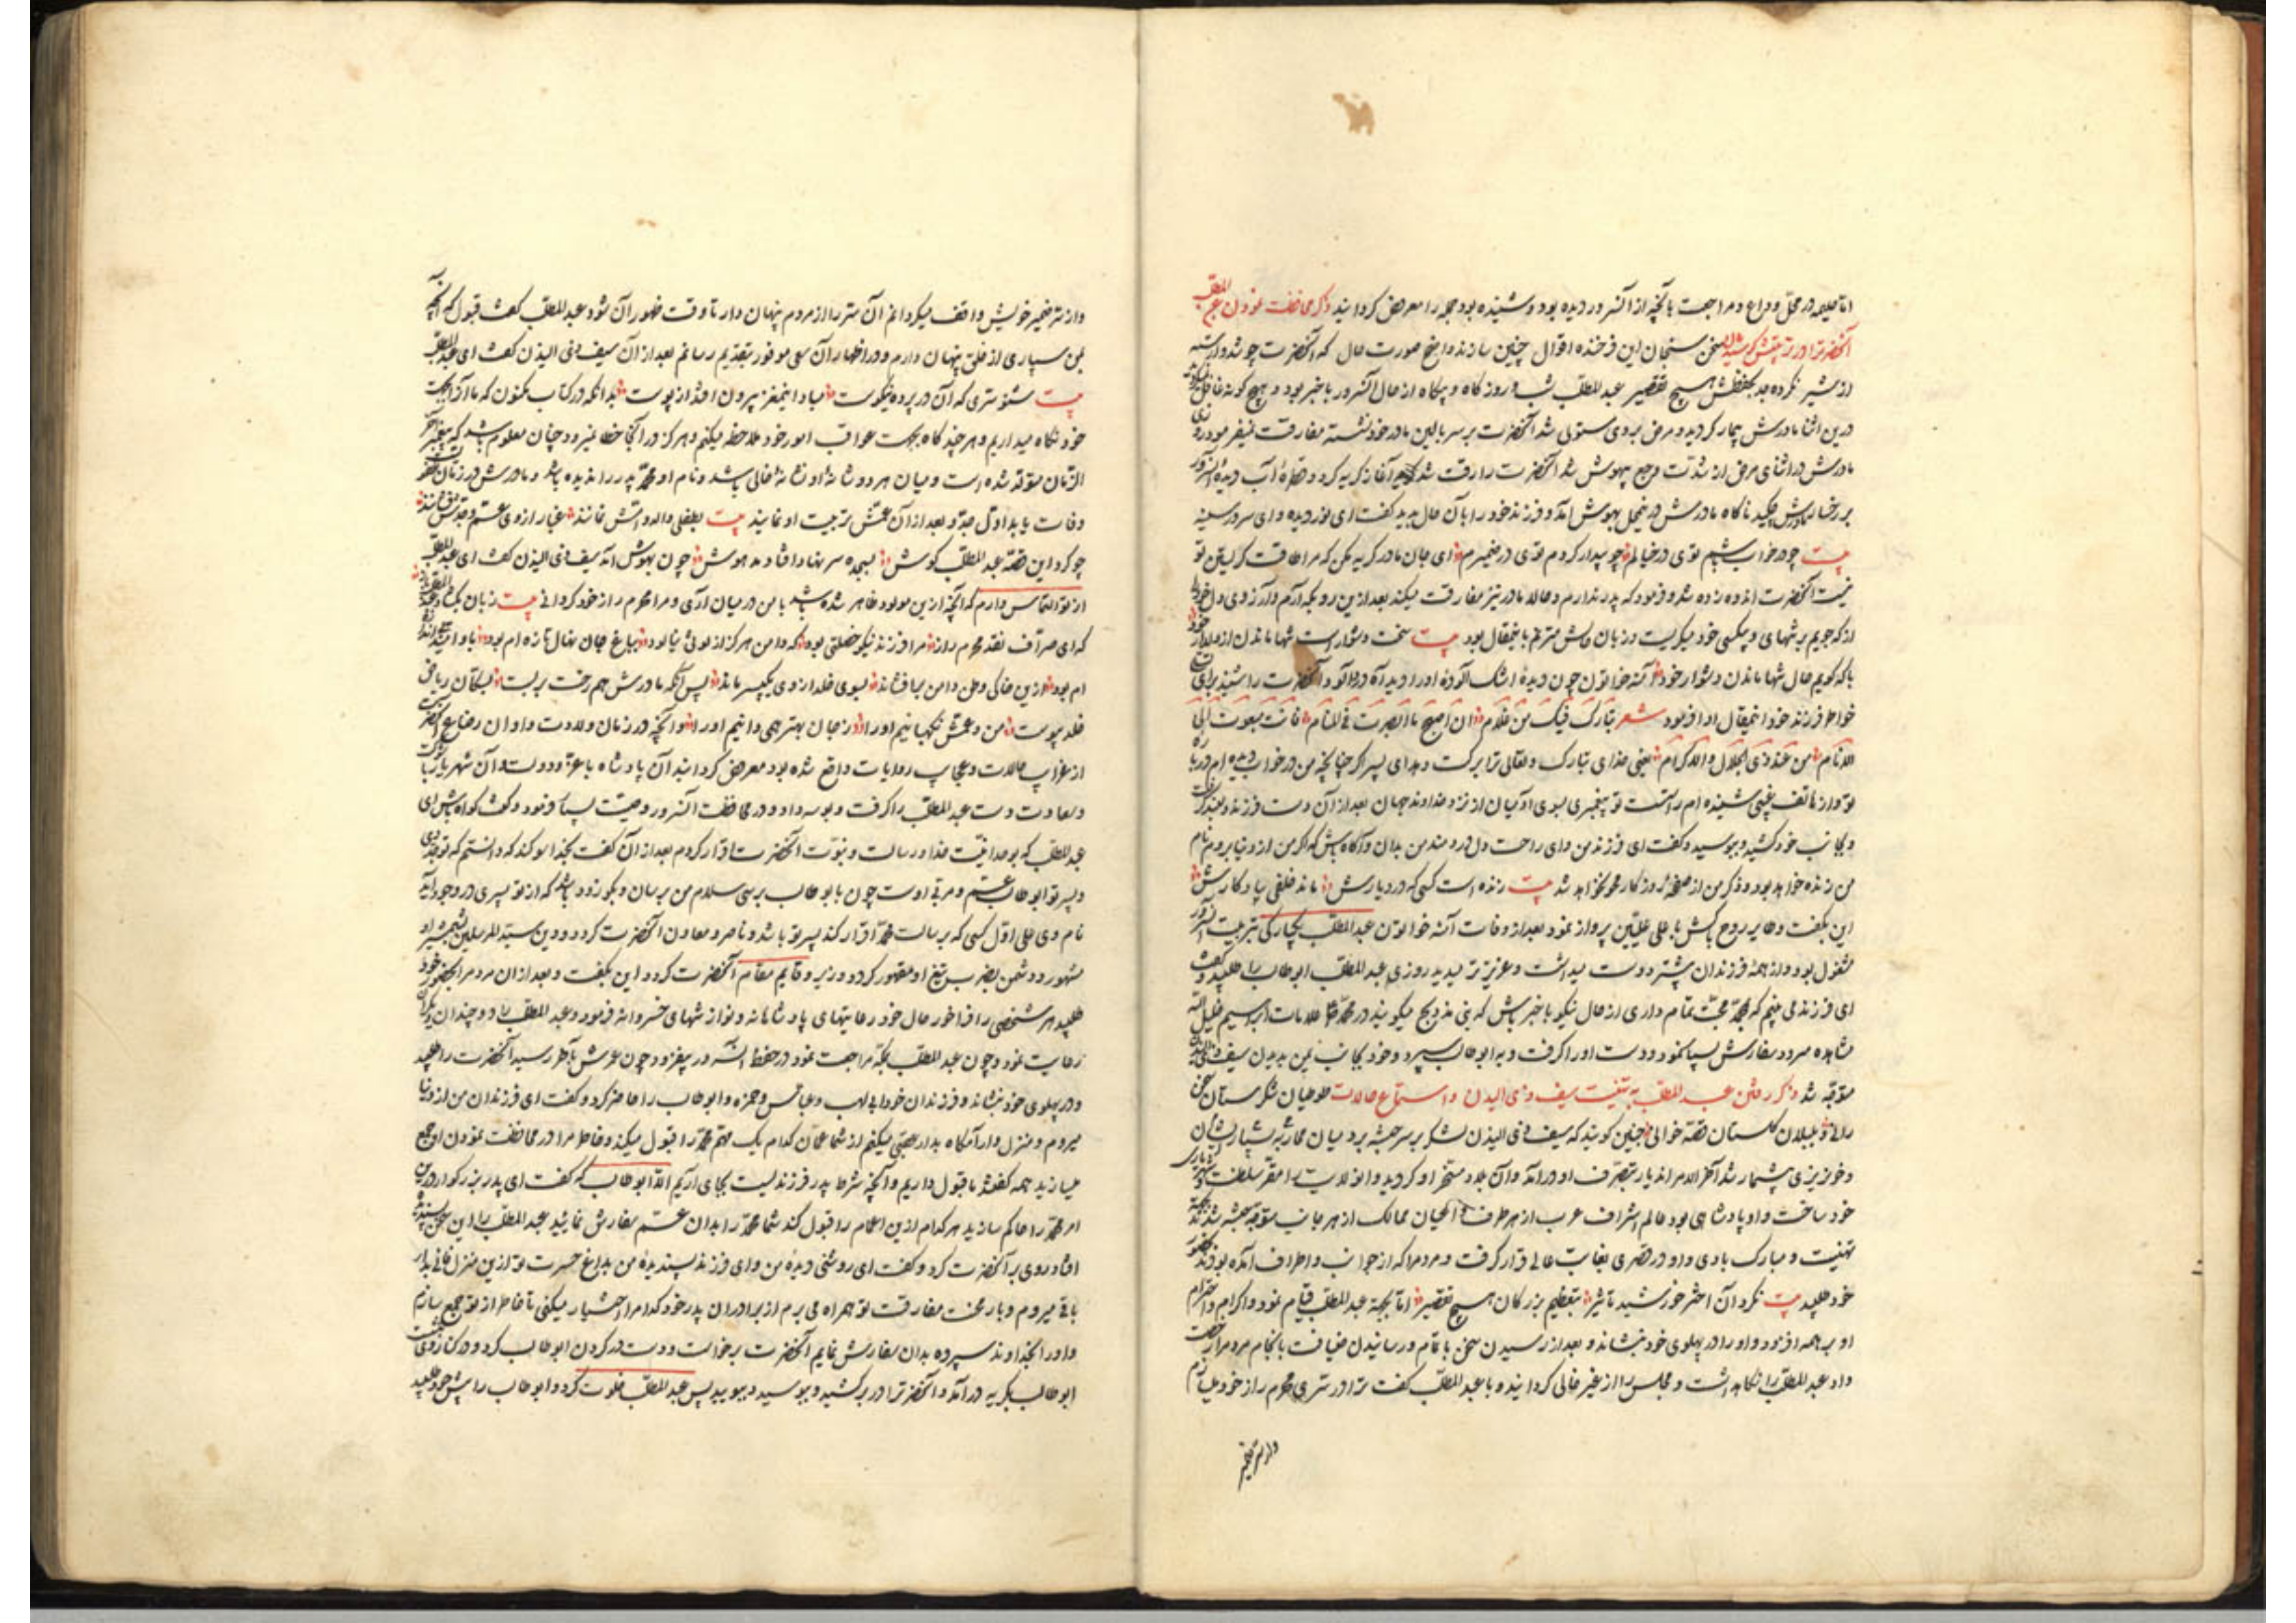 اما حلیمه در محل وداع و مراجعت بآنچه از آن سرور دیده بود و شنیده بود جمله را معروض گردانید ذکر محافظت نمودن عبد المطلب
آنحضرترا و در تربیتش کوشیدن سخن سنجان این فرخنده اقوال چنین سازند واضح صورت حال که آنحضرت چو شد وارسته
از شیر نکرده جد بحفظش هیچ تقصیر عبد المطلب شب و روز گاه و بیگاه از حال آنسرور با خبر بود و بهیچ گونه غافل
درین اثنا مادرش بیمار گردید و مرض بر وی مستولی شد آنحضرت بر سر بالین مادر خود نشسته مفارقت نمیفرمود روزی
مادرش در اثنای مرض از شدت وجع بیهوش شد آنحضرت را رقت شد آغاز گریه کرد و قطرهٔ آب دیدهٔ آنسرور
بر رخسار مادرش چکید ناگاه مادرش بهوش آمد و فرزند خود را بآن حال بدید گفت ای نور دیده و ای سرور سینه
بیت چو در خواب باشم توی در خیالم چو بیدار گردم توی در ضمیرم ای جان مادر گریه مکن که مرا طاقت گریستن تو
نیست آنحضرت اندوه زده شد و فرمود که پدر ندارم و حالا مادر نیز مفارقت میکند بعد ازین رو بکه آرم و آرزوی دل خود
از که جویم بر تنهایی و بیکسی خود میگریست و زبان حالش مترنم باینمقال بود بیت سخت دشوار است تنها ماندن از دلدار خود
با که گویم حال تنها ماندن دشوار خود آمنه خواتون چون دیدهٔ اشک آلودهٔ او را دید آه درد آلود
خواطر فرزند خود اینمقال ادا فرمود شعر بارک فیک من غلام ان صح ما ابصرت فی المنام فانت مبعوث الی
الانام من عند ذی الجلال والاکرام یعنی خدای تبارک و تعالی ترا برکت دهد ای پسر اگر چنانچه من در خواب دیده ام
تو و از هاتف غیبی شنیده ام راست است تو پیغمبری بسوی آدمیان از نزد خداوند جهان بعد از آن دست فرزند دلبند گرفت
و بجانب خود کشید و ببوسید و گفت ای فرزند من و ای راحت دل دردمند من بدان و آگاه باش که اگر من از دنیا بروم نام
من زنده خواهد بود و ذکر من از صفحهٔ روزگار محو نخواهد شد بیت زنده است کسی که در دیارش ماند خلفی بیادگارش
این بگفت و طایر روح پاکش باعلی علیین پرواز نمود بعد از وفات آمنه خواتون عبد المطلب بیکبارگی بتربیت آنسرور
مشغول بود و از همهٔ فرزندان بیشتر دوست میداشت و عزیزتر میدید روزی عبد المطلب ابو طالب را طلبید و گفت
ای فرزند می بینم که بمحمد محبت تمام داری از حال نیکو با خبر باش که بنی مذحج میگویند در محمد علامات ابراهیم خلیل الله
مشاهده میرود سفارش بسیار نمود و دست او را گرفت و به ابو طالب سپرد و خود بجانب یمن بدیدن سیف ذی الیزن
متوجه شد ذکر رفتن عبد المطلب به تهنیت سیف ذی الیزن و استماع حالات طوطیان شکرستان سخن
رانی و بلبلان گلستان قصه خوانی چنین گویند که سیف ذی الیزن لشکر بر سر حبشه برد میان محاربهٔ بسیار
و خونریزی بیشمار شد آخر الامر آندیار بتصرف او درآمد و آن بلاد مسخر او گردید و انولایت را مقر سلطنت
خود ساخت و او پادشاهی بود عالم اشراف عرب از هر طرف و اعیان ممالک از هر جانب متوجه حبشه شدند بجهة
تهنیت و مبارک بادی و او در قصری بغایت عالی قرار گرفت و مردم را که از جوانب و اطراف آمده بودند بحضور
خود طلبید بیت نکرد آن اختر خورشید تاثیر بتعظیم بزرگان هیچ تقصیر اما بجهة عبد المطلب قیام نمود و اکرام و احترام
او بر همه افزود و او را در پهلوی خود بنشاند و بعد از رسیدن سخن باتمام و رسانیدن ضیافت بانجام مردم را رخصت
داد عبد المطلب را نگاهداشت و مجلس را از غیر خالی گردانید و با عبد المطلب گفت ترا در سری محرم راز خود میسازم
و از سر ضمیر
و از سر ضمیر خویش واقف میگردانم آن سر را از مردم پنهان دار تا وقت ظهور آن شود عبد المطلب گفت قبول کردم آنچه
بمن سپاری از خلق پنهان دارم و در اظهار آن سعی موفور بتقدیم رسانم بعد از آن سیف ذی الیزن گفت ای عبد المطلب
بیت شنو سری که آن در پرده نیکوست مبادا اینمغز بیرون افتد از پوست بدانکه در کتاب مکنون که ما آنرا بجهت
خود نگاه میداریم و هر چند گاه بجهت عواقب امور خود ملاحظه میکنم و هرگز در آنجا خطا نمیرود چنان معلوم شد که پیغمبر آخر
الزمان متولد شده است و میان هر دو شانهٔ او نشانهٔ خالی باشد و نام او محمد پدر را ندیده باشد و مادرش در زمان
وفات یابد اول جد و بعد از آن عمش تربیت او نمایند بیت بطفلی والد و امش نمانند غبار از روی عم و جدش فشانند
چو کرد این قصه عبد المطلب گوش بسجده سر نهاد افتاد مدهوش چون بهوش آمد سیف ذی الیزن گفت ای عبد المطلب
از تو التماس دارم که آنچه ازین مولود ظاهر شده باشد با من در میان آری و مرا محرم راز خود گردانی بیت زبان بگشاد عبد المطلب
که ای صراف نقد محرم راز مرا فرزند نیکو خصلتی بود که دامن هرگز از لوثی نیالود بباغ جان نهال تازه ام بود
ام بود ازین خاکی وطن دامن بر افشاند بسوی خلد از وی یک پسر ماند پس آنگه مادرش هم رخت بر بست ببستان ریاض
خلد پیوست من و عمش نگهبانیم او را ز جان بهتر همی دانیم او را و آنچه در زمان ولادت و اوان رضاع آنحضرت
از غرایب حالات و عجایب روایات واقع شده بود معروض گردانید آن پادشاه با عزة و دولت و آن شهریار با
و سعادت دست عبد المطلب را گرفت و بوسه داد و در محافظت آنسرور وصیت بسیار فرمود و گفت گواه باش ای
عبد المطلب که بوحدانیت خدا و رسالت و نبوت آنحضرت اقرار کردم بعد از آن گفت بخدا سوگند که دانستم که تو جد وی
و پسر تو ابو طالب عم و مربی اوست چون با بو طالب برسی سلام من برسان و بگو زود باشد که از تو پسری در وجود آید
نام وی علی اول کسی که برسالت محمد اقرار کند پسر تو باشد و ناصر و معاون آنحضرت گردد و دین سید المرسلین بشمشیر او
مشهور و دشمن بضرب تیغ او مقهور گردد و وزیر و قایم مقام آنحضرت گردد این بگفت و بعد از ان مردم را بحضور خود
طلبید هر شخصی را فراخور حال خود رعایتهای پادشاهانه و نوازشهای خسروانه فرمود و عبد المطلب را دو چندان دیگران
رعایت نمود و چون عبد المطلب بمکه مراجعت نمود در حفظ آنسرور بیفزود و چون عمرش بآخر رسید آنحضرت را طلبید
و در پهلوی خود بنشاند و فرزندان خود ابی لهب و عباس و حمزه و ابو طالب را حاضر کرد و گفت ای فرزندان من از دنیا
میروم و منزل دار آنگاه بدار عقبی میکنم از شما عمان کدام یک مهم محمد را قبول میکند و خاطر مرا در محافظت نمودن او جمع
میسازید همه گفتند ما قبول داریم و آنچه شرط پدر فرزندیست بجای آریم اما ابو طالب گفت ای پدر بزرگوار درین
امر محمد را حاکم سازید هر کدام ازین اعمام را قبول کند شما محمد را بدان عم سفارش نمایید عبد المطلب را این سخن پسند
افتاد روی بر آنحضرت کرد و گفت ای روشنی دیدهٔ من و ای فرزند پسندیدهٔ من بداغ حسرت تو ازین منزل فانی بدار
باقی میروم و بار محنت مفارقت تو همراه می برم از برادران پدر خود کدام را اختیار میکنی تا خاطر از تو جمع سازم
و او را بخداوند سپرده بدان سفارش نمایم آنحضرت برخاست و دست در گردن ابو طالب کرد و در کنار وی نشست
ابو طالب بگریه درآمد و آنحضرترا در بر کشید و ببوسید و ببویید پس عبد المطلب خلوت کرد و ابو طالب را پیش خود طلبید